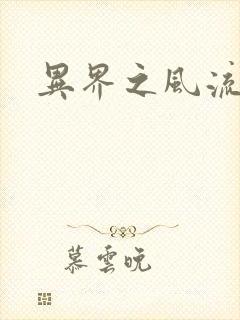 異界之風流
慕雲晚